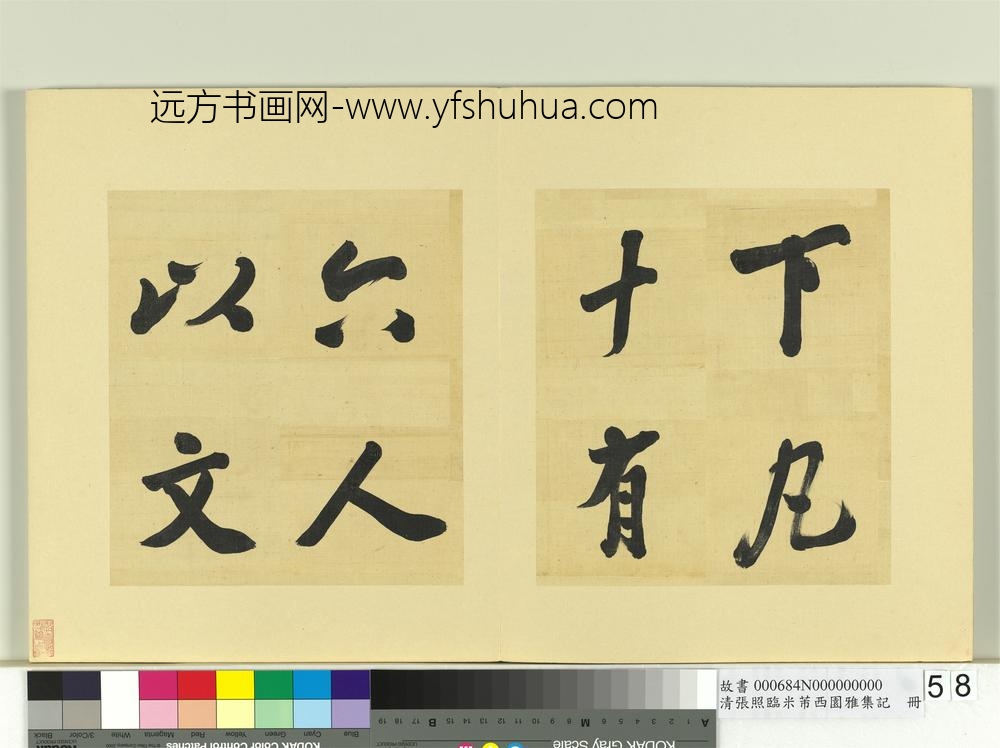 远方书画网-www.yfshuhua.com
下凡
十有
六人
以文
故書 000684N000000000
清張照臨米芾西園雅集記 冊
58
Blue
Cyan
Green
Yellow
Red
Magenta
White
3/Color
Black
KODAK Color Control Patches
A 1 2 3 4 5 6 M 8 9 10 11 12 13 14 15 B 17 18 19
KODAK Gray Scale